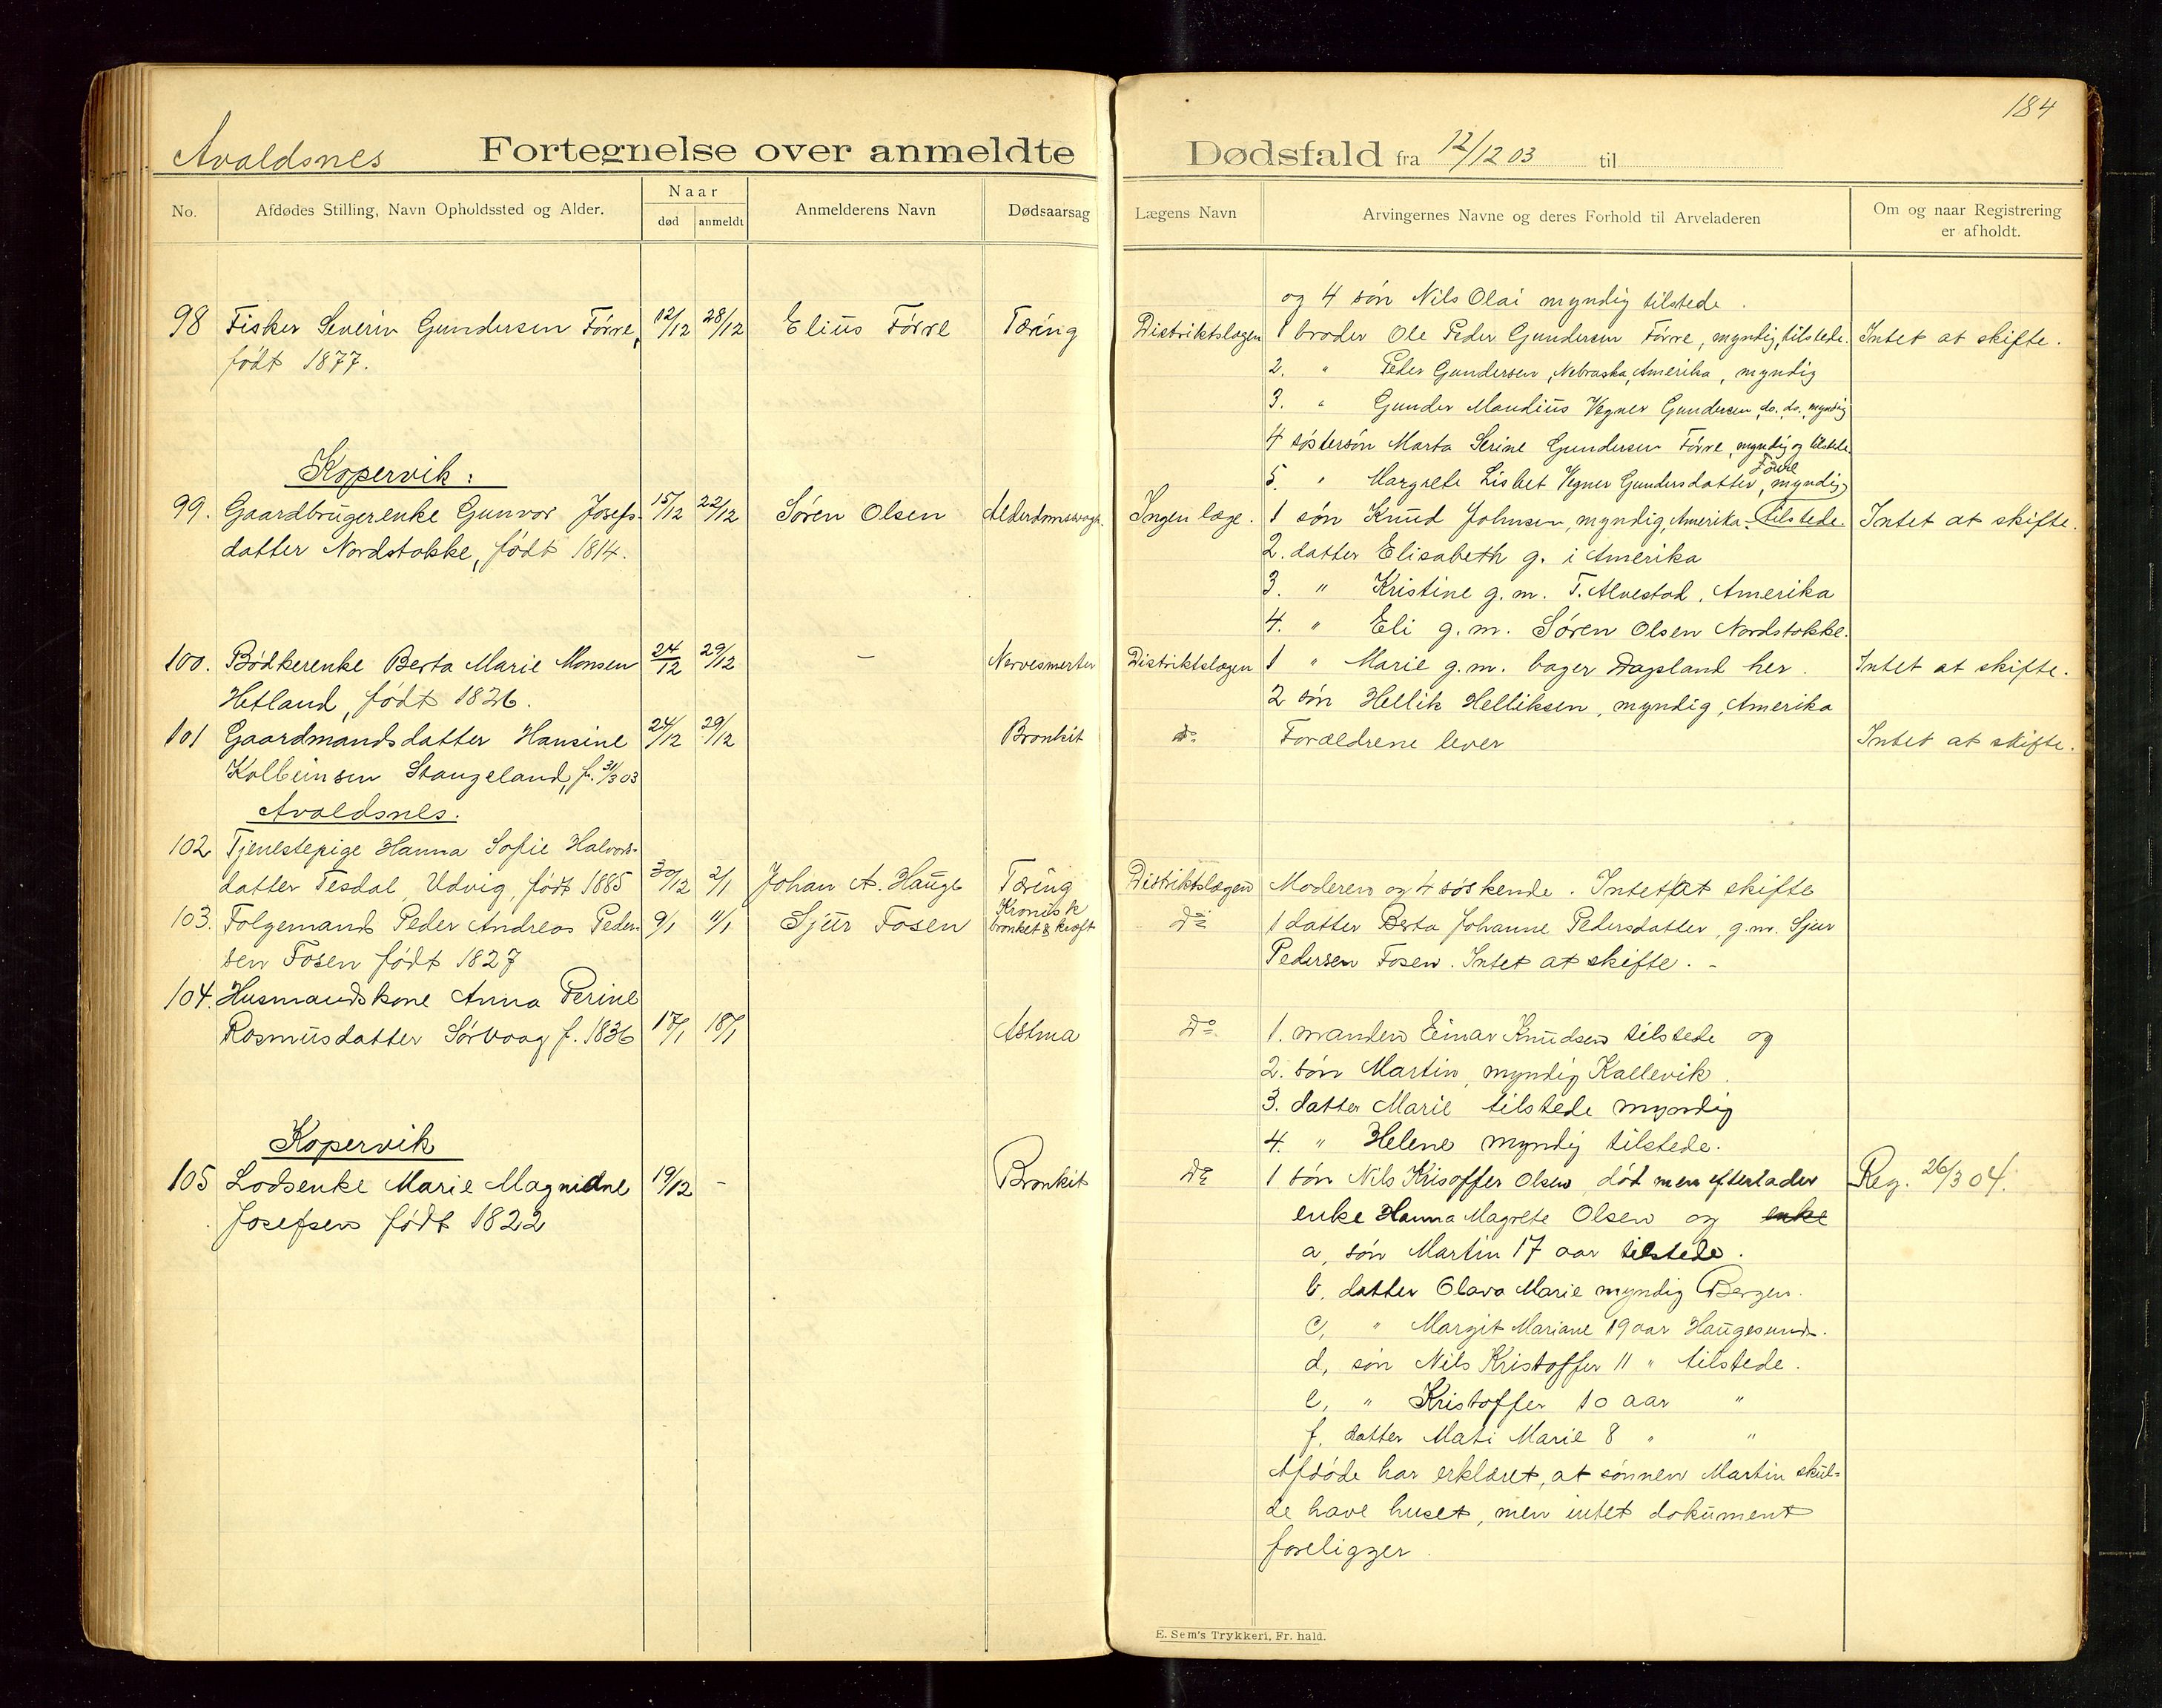 184
Avaldsnes Fortegnelse over anmeldte Dødsfald fra 12/12 03 til
No.
Afdødes Stilling, Navn Opholdssted og Alder.
Naar
død
anmeldt
Anmelderens Navn
Dødsaarsag
Lægens Navn
Arvingernes Navne og deres Forhold til Arveladeren
Om og naar Registrering
er afholdt.
og 4 søn Nils Olai myndig tilstede.
98 Fisker Severin Gundersen Førre, 12/12 28/12 Elius Førre Tæring Distriktslægen 1 broder Ole Peder Gundersen Førre, myndig, tilstede. Intet at skifte.
født 1877.
2. " Peder Gundersen, Nebraska, Amerika, myndig
3. " Gunder Mandius Vegner Gundersen, do. do. myndig
4 søstersøn Marta Serine Gundersen Førre, myndig og tilstede
Kopervik:
5. " Margrete Lisbet Vegner Gundersdatter Førre, myndig
99. Gaardbrugerenke Gunvor Josefs- 15/12 22/12 Søren Olsen Alderdomssvagh. Ingen læge. 1 søn Knud Johnsen, myndig, Amerika. tilstede. Intet at skifte.
datter Nordstokke, født 1814.
2. datter Elisabeth g. i Amerika
3. " Kristine g. m. T. Alvestad, Amerika
4. " Eli g. m. Søren Olsen Nordstokke.
100. Bødkerenke Berta Marie Monsen 24/12 29/12 — Nervesmerter Distriktslægen 1 " Marie g. m. bager Dagsland her. Intet at skifte.
Hetland, født 1826.
2 søn Hellik Helliksen, myndig, Amerika
101 Gaardmandsdatter Hansine 24/12 29/12 Bronkit do Forældrene lever Intet at skifte.
Kolbeinsen Stangeland, f. 31/3 03
Avaldsnes.
102 Tjenestepige Hanna Sofie Halvors-
datter Tesdal, Udvig, født 1885 30/12 2/1 Johan A. Hauge Tæring Distriktslægen Moderen og 4 søskende. Intet at skifte
103. Folgemand Peder Andreas Peder- 9/1 11/1 Sjur Fosen Kronisk
bronket & kræft Do 1 datter Berta Johanne Pedersdatter, g. m. Sjur
sen Fosen født 1827
Pedersen Fosen. Intet at skifte. -
104. Husmandskone Anna Perine
Rasmusdatter Sørvaag f. 1836 17/1 18/1 Astma Do 1. manden Einar Knudsen tilstede og
2. søn Martin, myndig Kallevik.
3. datter Marie tilstede myndig
Kopervik
4. " Helene myndig tilstede.
105 Lodsenke Marie Magnidne 19/12 - Bronkit Do 1 søn Nils Krisoffer Olsen, død men efterlader Reg. 26/3 04.
Josefsen født 1822
enke Hanna Magrete Olsen og enke
a, søn Martin 17 aar tilstede.
b, datter Olava Marie myndig Bergen.
c, " Margit Mariane 19 aar Haugesund.
d, søn Nils Kristoffer 11 " tilstede.
e, " Kristoffer 10 aar "
f, datter Mati Marie 8 " "
Afdøde har erklæret, at sønnen Martin skul-
de have huset, men intet dokument
foreligger.
E. Sem's Trykkeri, Fr. hald.